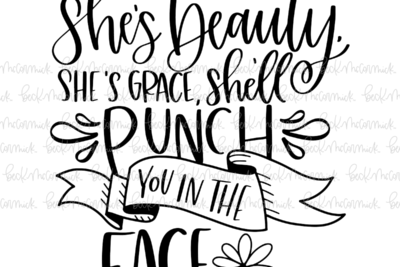 She's Beauty,
SHE'S GRACE, she'll
PUNCH
YOU IN THE
FACE